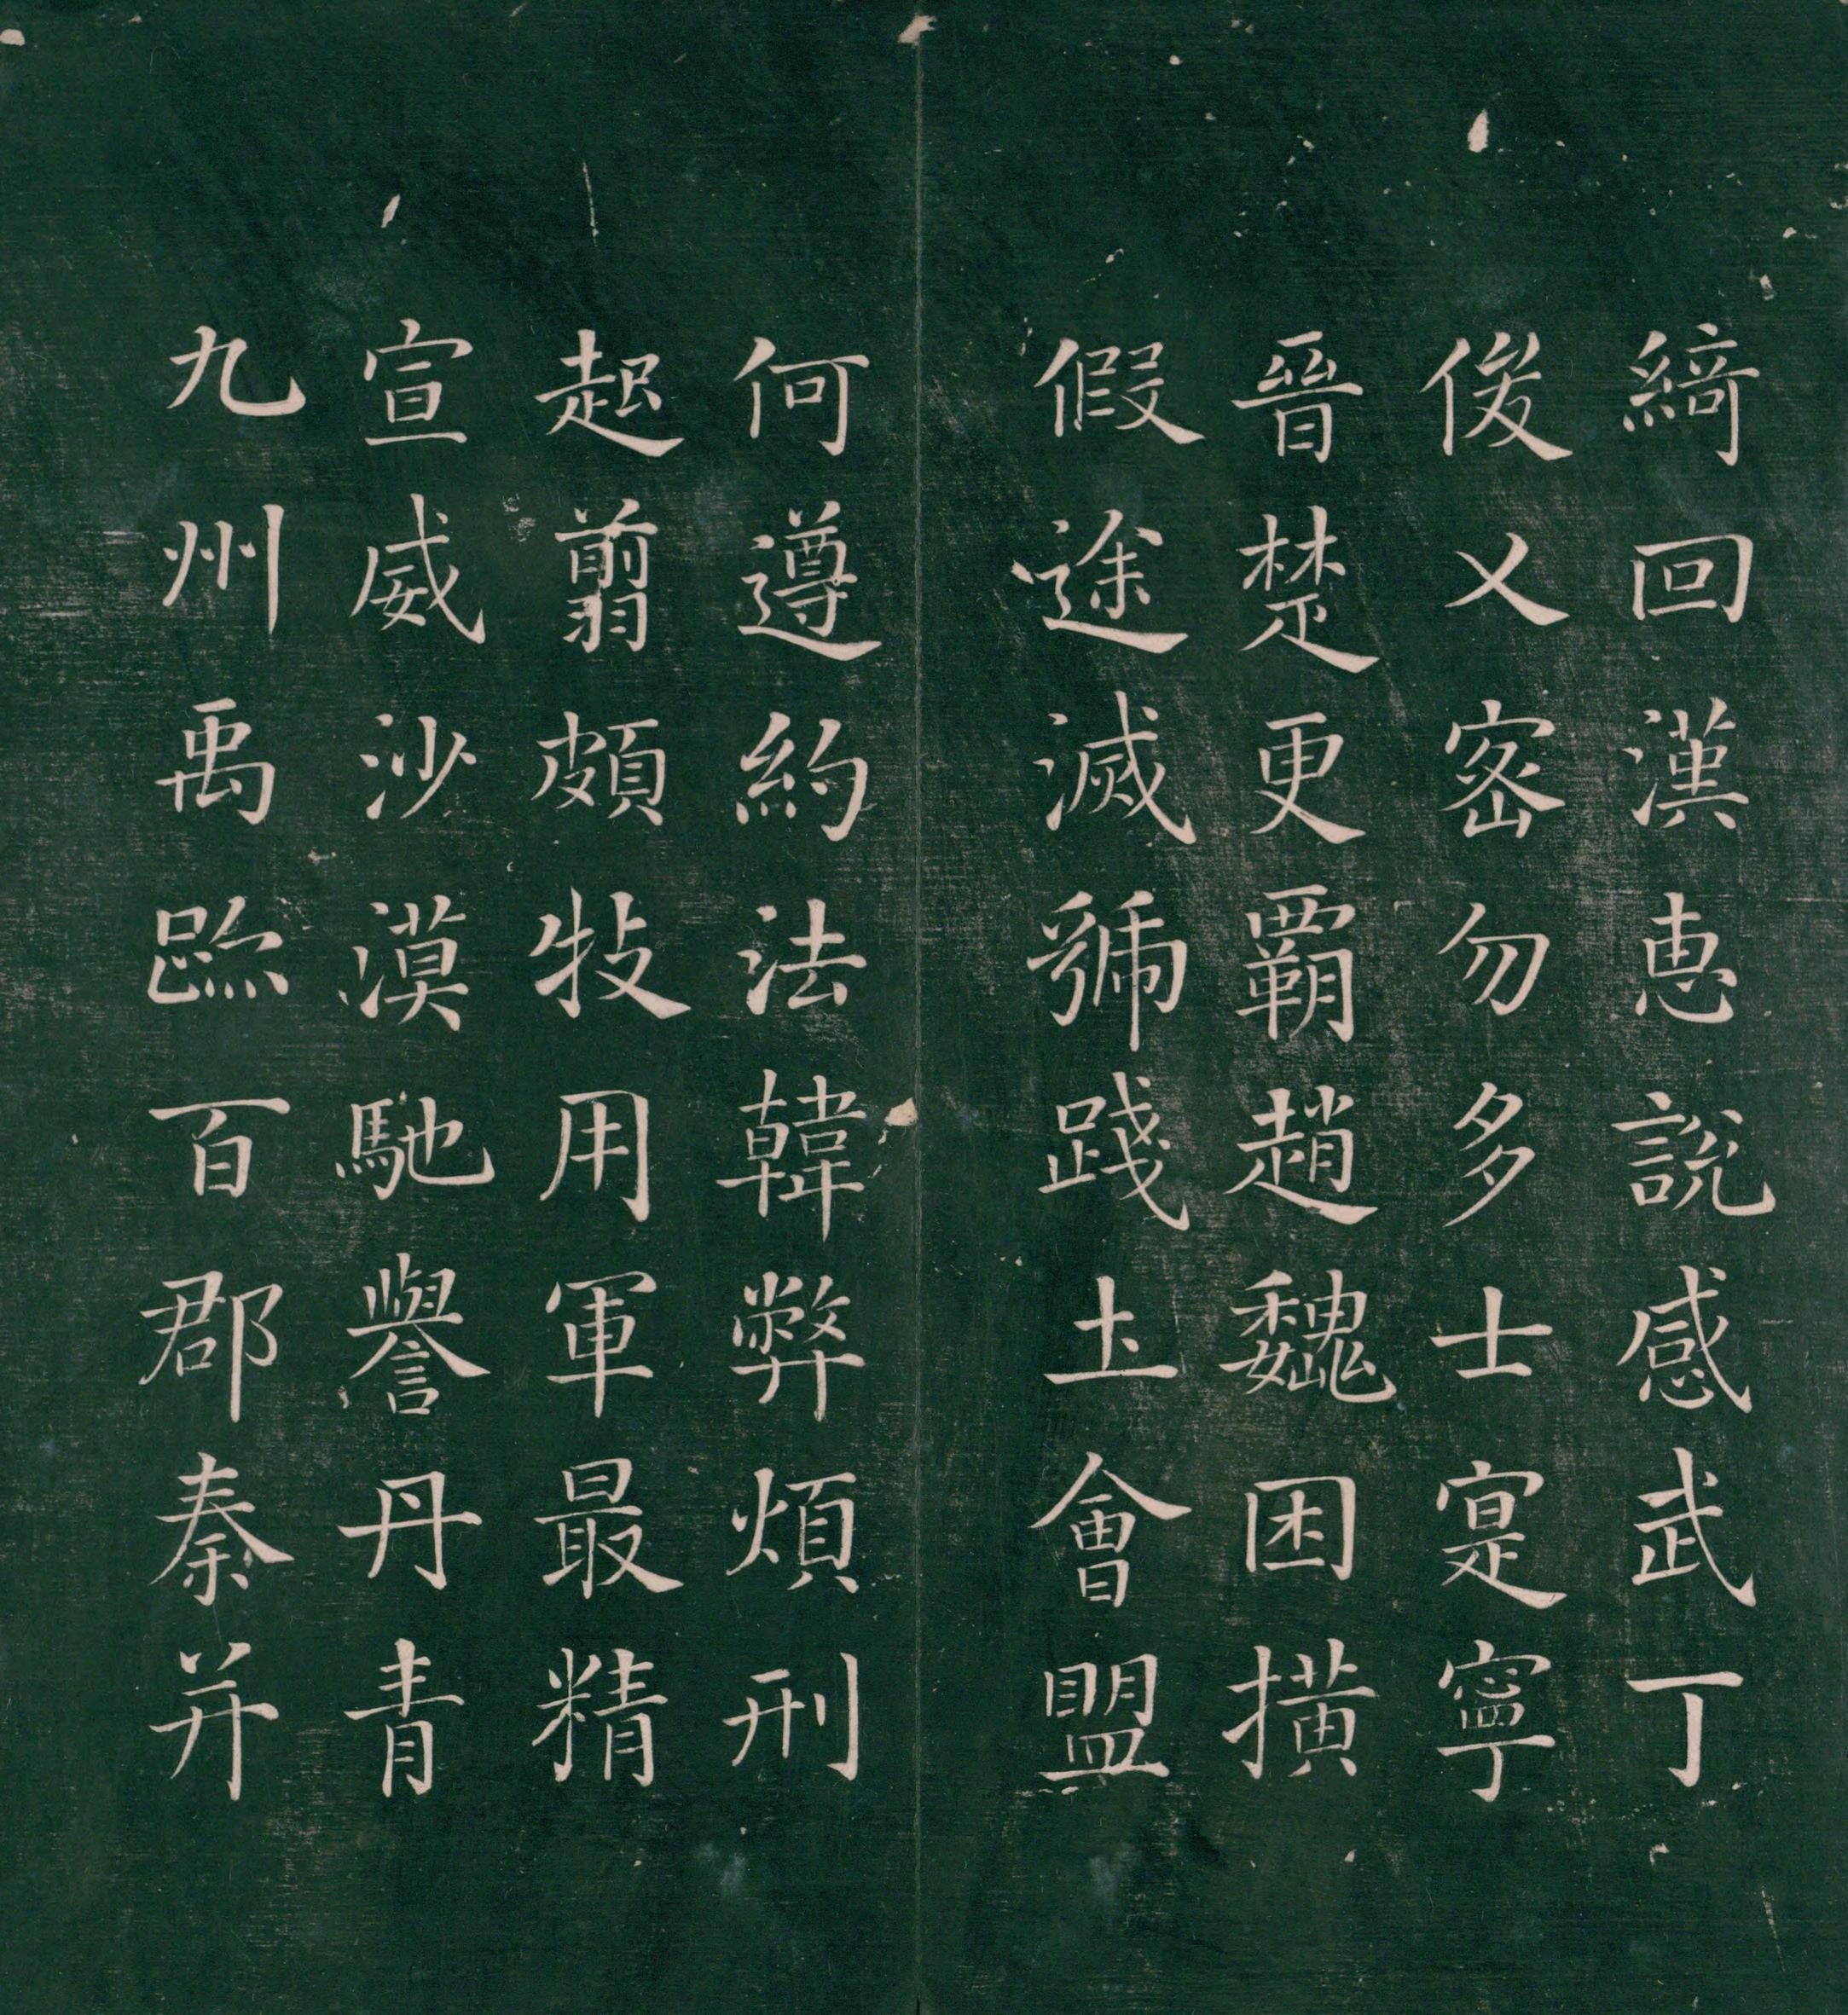 綺回漢惠說感武丁
俊乂密勿多士寔寧
晉楚更覇趙魏困撗
假途滅虢踐土會盟
何遵約法韓弊煩刑
起翦頗牧用軍最精
宣威沙漠馳譽丹青
九州禹跡百郡秦并